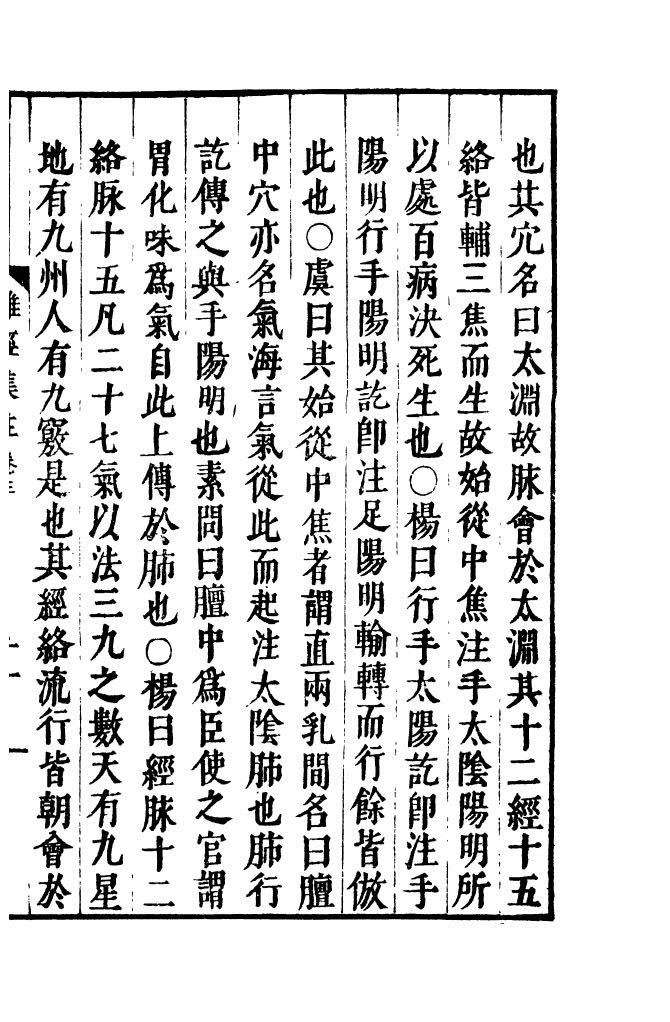 也其穴名曰太淵故脉會於太淵其十二經十五
絡皆輔三焦而生故始從中焦注手太陰陽明所
以處百病決死生也○楊曰行手太陽訖卽注手
陽明行手陽明訖卽注足陽明輸轉而行餘皆倣
此也○虞曰其始從中焦者謂直兩乳間名曰膻
中穴亦名氣海言氣從此而起注太陰肺也肺行
訖傳之與手陽明也素問曰膻中爲臣使之官謂
胃化味爲氣自此上傳於肺也○楊曰經脉十二
絡脉十五凡二十七氣以法三九之數天有九星
地有九州人有九竅是也其經絡流行皆朝會於
難經集注卷三
十一